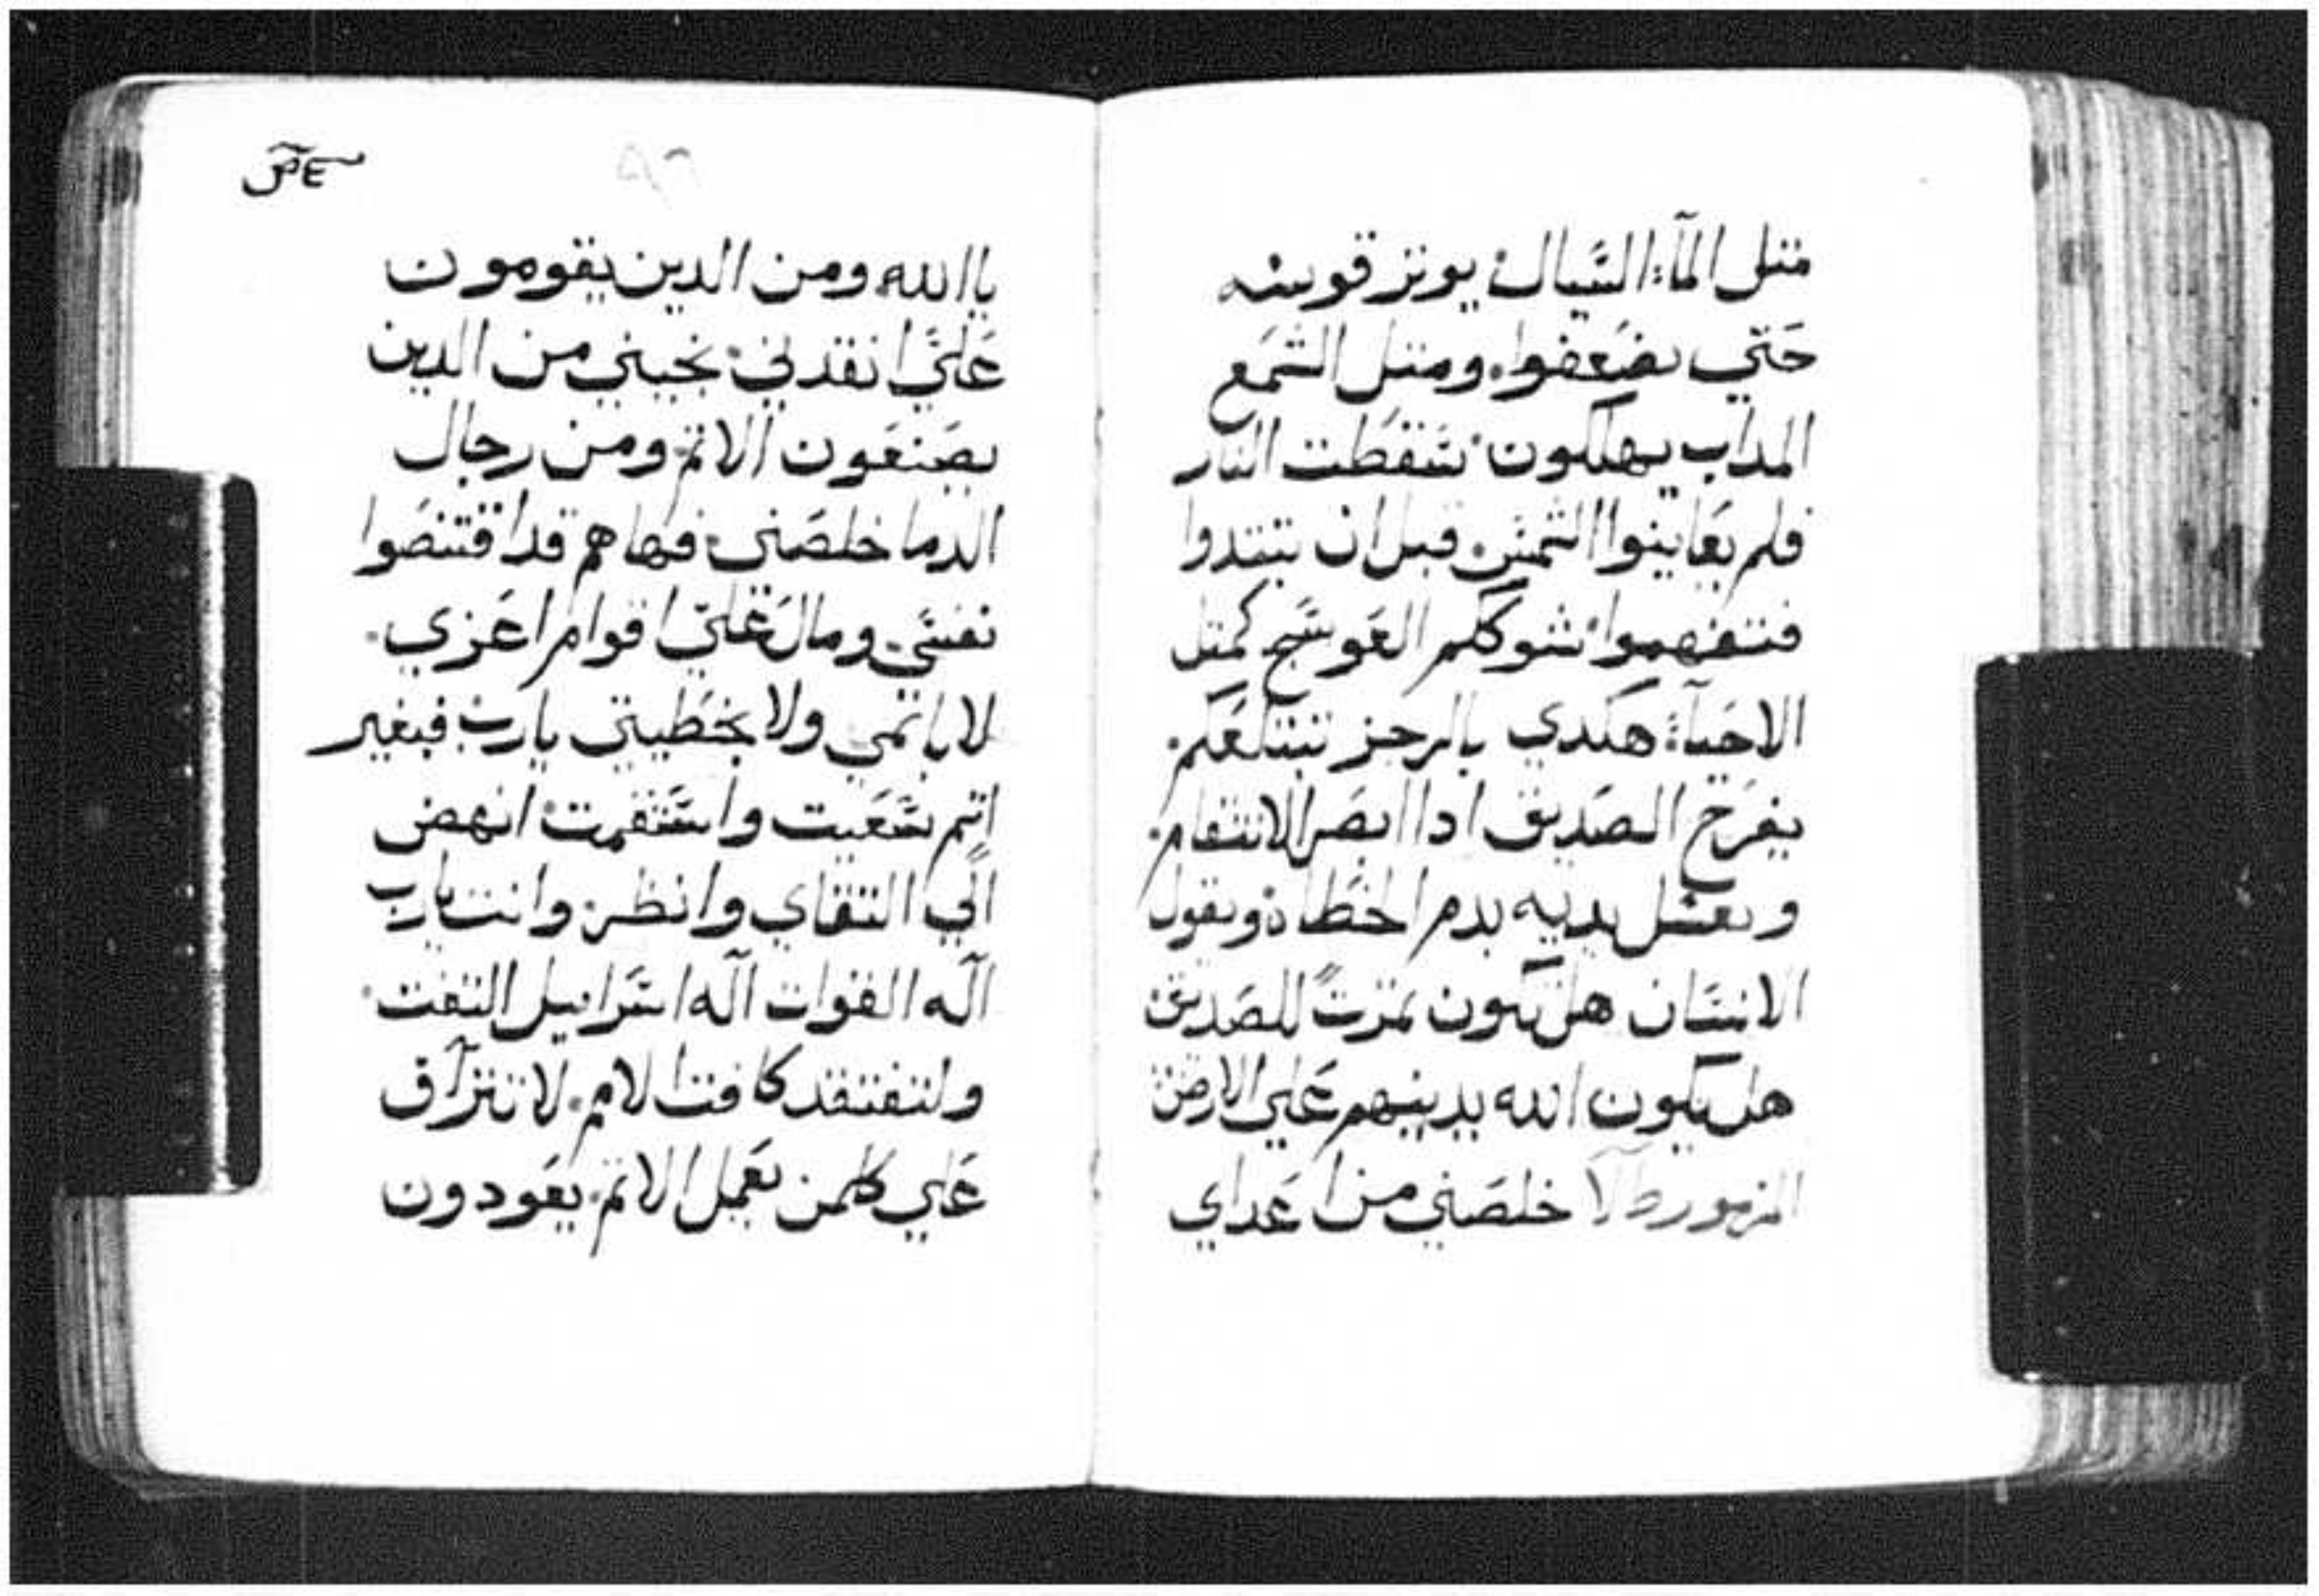 متل المآء السَّيال يوتر قوسه
حَتي يضَعفوا. ومتل الشمَع
المداب يهلكون. سَقطت النار
فلم يعَاينوا الشمسَ. قبل ان تبتدوا
فتتفهموا شوككم العَوسَج كمتل
الاحَيآء هكدي بالرجز تبتلعَكم.
يفرَح الصَديق ادا ابصَر الانتقام.
ويغسل يديه بدم الخطاة ويقول
الانسَان هل تكون تمرتً للصَديق
هل يكون الله يدينهم عَلي الارض
المزمور خلصَني من اعَداي
ياالله ومن الدين يقومون
عَليَّ انقدني. نجيني من الدين
يصَنعَون الاتم. ومن رجال
الدما خلصَني. فهاهم قد اقتنصَوا
نفسَي. ومال عَليّ اقوام اعَزي.
لا باتمي ولا بخطيتي يارب. فبغير
اتم سَعَيت واسَتقمت. انهض
الَي التقاي وانظر. وانت يارب
الَه القوات الَه اسَراييل التفت.
ولتفتقد كافت الامم. لا تترآف
عَلي كلمن يعَمل الاتم. يعَودون